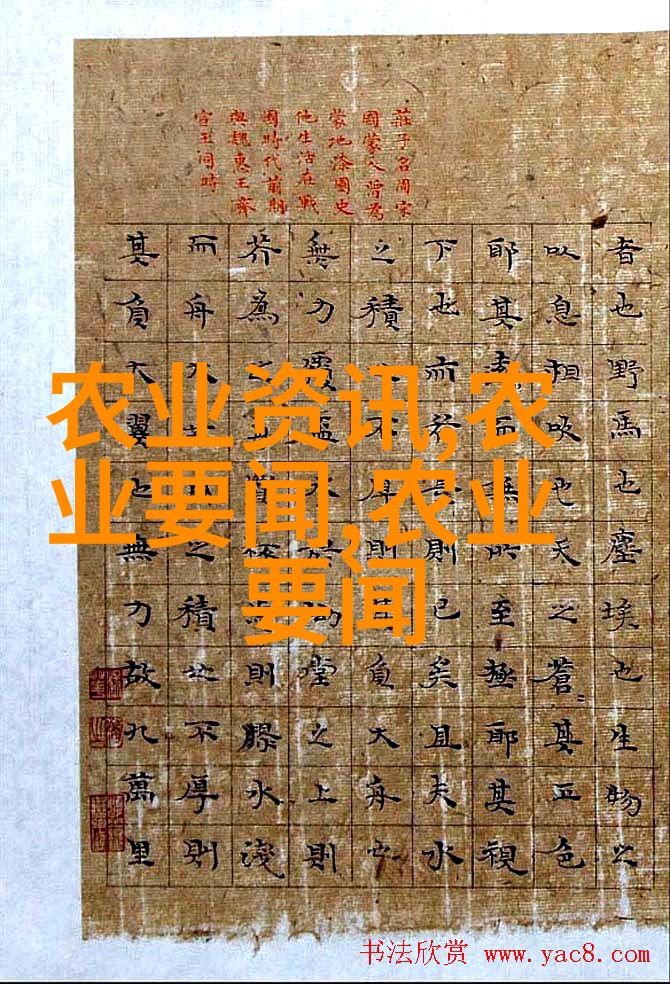 莊子名周宋
國蒙人曾為
蒙地漆園史
他生活在戰
國時代前期
與魏惠王齊
宣王同時
者也野馬也塵埃也生物之
以息相吹也天之蒼其正色
耶其遠而無所至極耶其視
下也而若長則已矣且夫水
之積也不厚則其負大舟也
無力覆盃水於坳堂之上則
芥為之舟置杯焉則膠水淺
而舟大也風之積也不厚則
其負大翼也無力故九萬里
农业资讯,农
业要闻,农业
要闻
书法欣赏 www.yac8.com